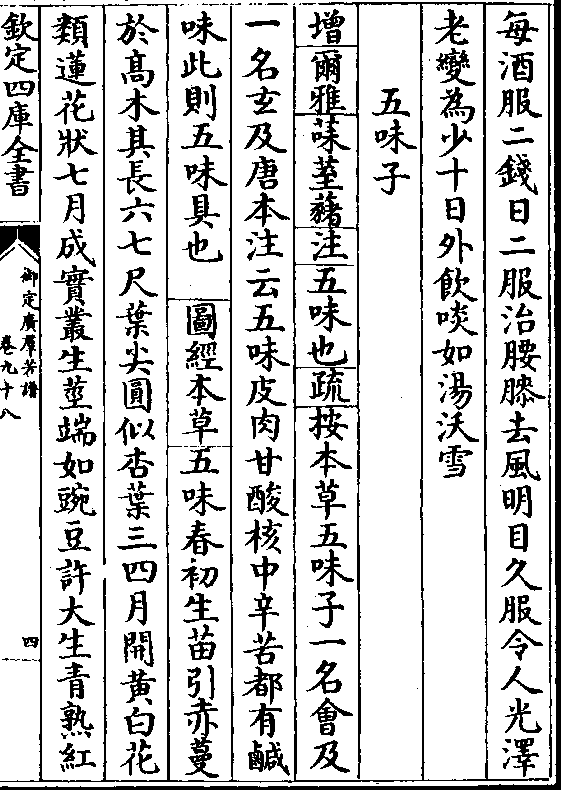 每酒服二錢日二服治腰膝去風明目久服令人光澤
老變為少十日外飲啖如湯沃雪
五味子
增爾雅菋荎蕏注五味也疏按本草五味子一名會及
一名玄及唐本注云五味皮肉甘酸核中辛苦都有鹹
味此則五味具也 圖經本草五味春初生苗引赤蔓
於髙木其長六七尺葉尖圓似杏葉三四月開黄白花
類蓮花狀七月成實叢生莖端如豌豆許大生青熟紅
欽定四庫全書
御定廣羣芳譜
卷九十八
四